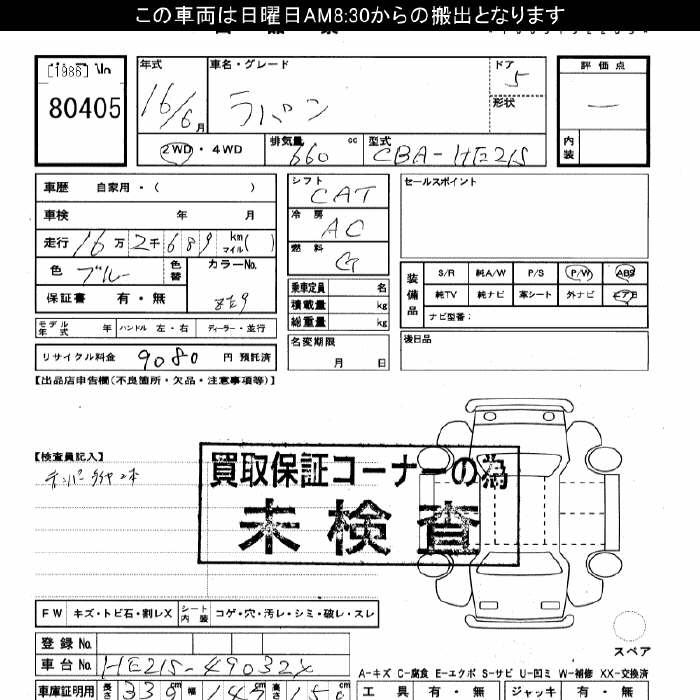 この車両は日曜日AM8:30からの搬出となります
[1986] No
80405
年式
16/6月
車名・グレード
ラパン
ドア
5
形状
評価点
内装
2WD・4WD
排気量
660 cc
型式
CBA-HE21S
車歴 自家用・( )
車検 年 月
走行 16万2千689 km マイル( )
色
ブルー
色替
カラーNo.
保証書 有・無
モデル年式 年 ハンドル 左・右 ディーラー・並行
リサイクル料金 9080 円 預託済
シフト
CAT
冷房
AC
燃料
G
乗車定員 名
積載量 kg
総重量 kg
名変期限
月 日
セールスポイント
装備品
S/R 純A/W P/S P/W ABS
純TV 純ナビ 革シート 外ナビ エアB
ナビ型番:
後日品
【出品店申告欄(不良箇所・欠品・注意事項等)】
【検査員記入】
テンパータイヤ2本
買取保証コーナーの為
未検査
FW キズ・トビ石・割レX シート内装 コゲ・穴・汚レ・シミ・破レ・スレ
スペア
登録No.
車台No. HE21S-49032X
A-キズ C-腐食 E-エクボ S-サビ U-凹ミ W-補修 XX-交換済
車庫証明用 長さ 339cm 幅 147cm 高さ 150cm
工具 有・無 ジャッキ 有・無